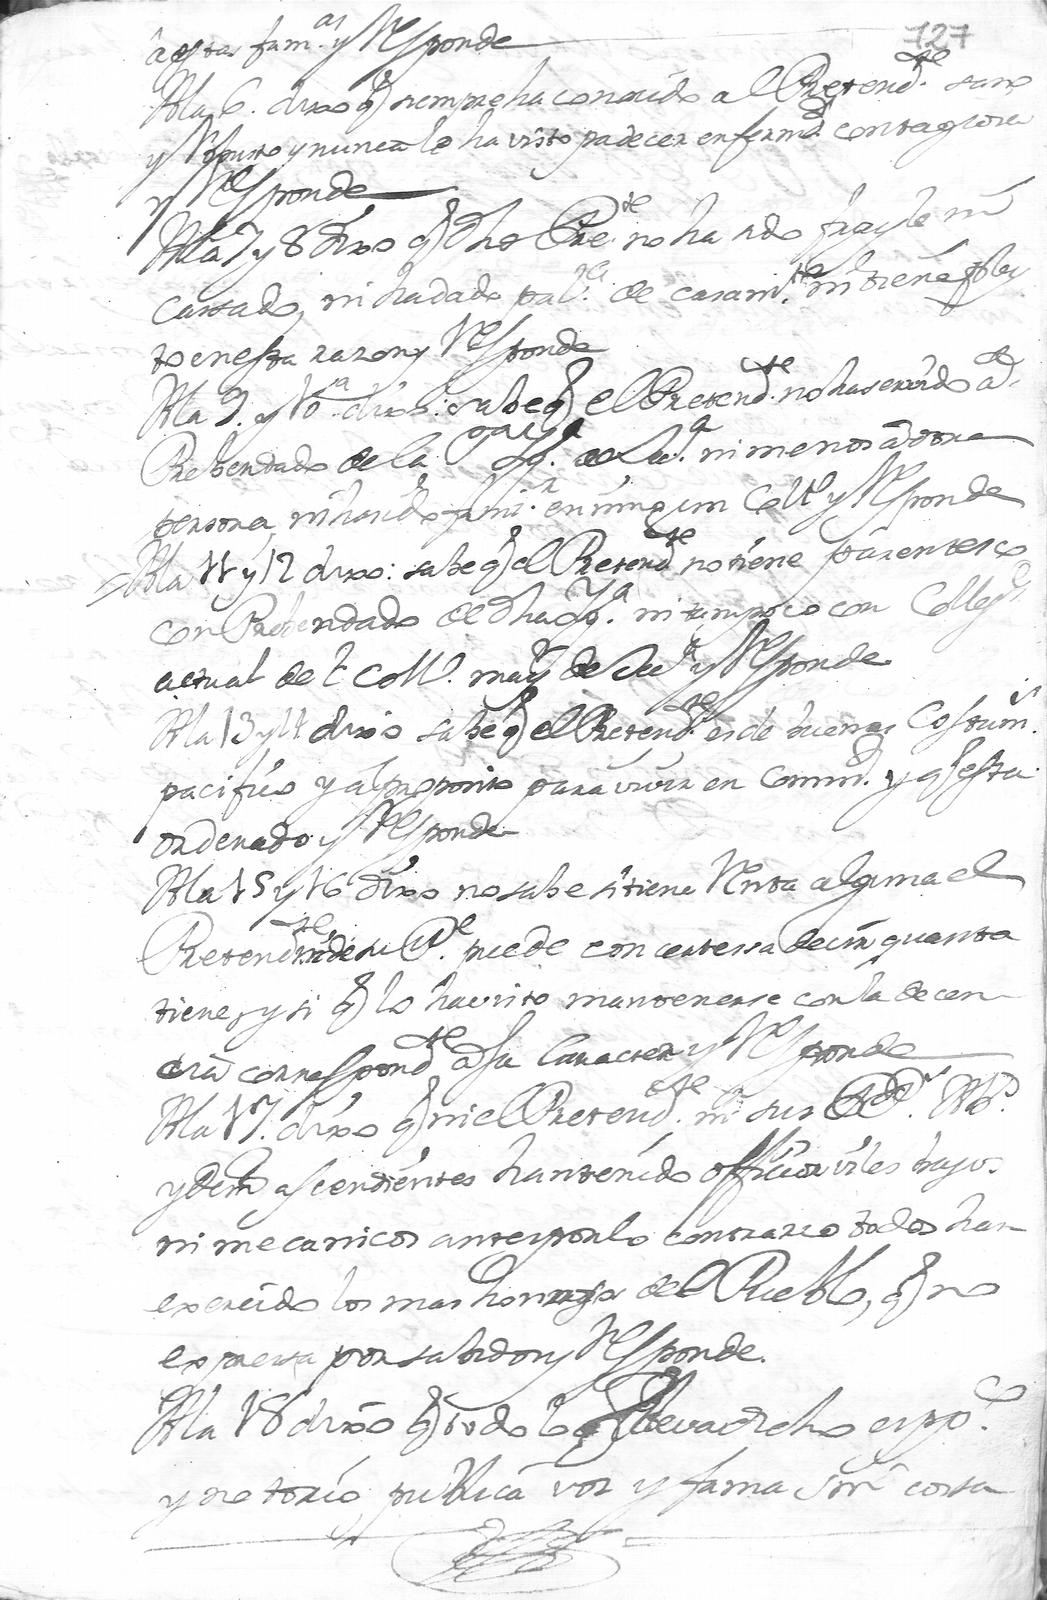 127
a estas fam.as y Responde
A la 6. dixo q siempre ha conocido a el Pretend.te sano
y Robusto y nunca le ha visto padecer enfermd contagiosa
y Responde
A la 7 y 8 dixo q dho Pre.te no ha sido frayle ni
Cassado, ni ha dado pal.ra de casam.to ni tiene
to en esta razon y Responde
A la 9. y 10.a dixo: sabe q el Pretend.te no ha servido a
Prebendado de la Sta Yg.a de ni menos a otra
persona, ni ha sido famil.r en ningun Coll.o y Responde
A la 11 y 12 dixo: sabe q el Pretend.te no tiene parentesco
con Prebendado de dha Yg.a ni tampoco con Colleg.l
actual de el Coll.o may.r de y Responde
A la 13 y 14 dixo sabe q el Pretend.te es de buenas Costum.s
pacifico y a el proposito para vivir en Comund. y q esta
ordenado y Responde
A la 15 y 16 dixo no sabe si tiene Renta alguna el
Pretend.te ni de su P.e puede con certessa decir quanta
tiene, y si q lo ha visto mantenerse con la decen
cia correspond.te a su Caracter y Responde
A la 17. dixo q ni el Pretend.te ni sus P.s
y dem ascendientes han tenido officios viles bajos
ni mecanicos antes por lo contrario todos han
exercido los mas honrrosos de el Pueblo, q no
expressa por sabidos y Responde.
A la 18 dixo q todo lo q lleva dicho es pp.co
y notorio publica voz y fama sin cossa